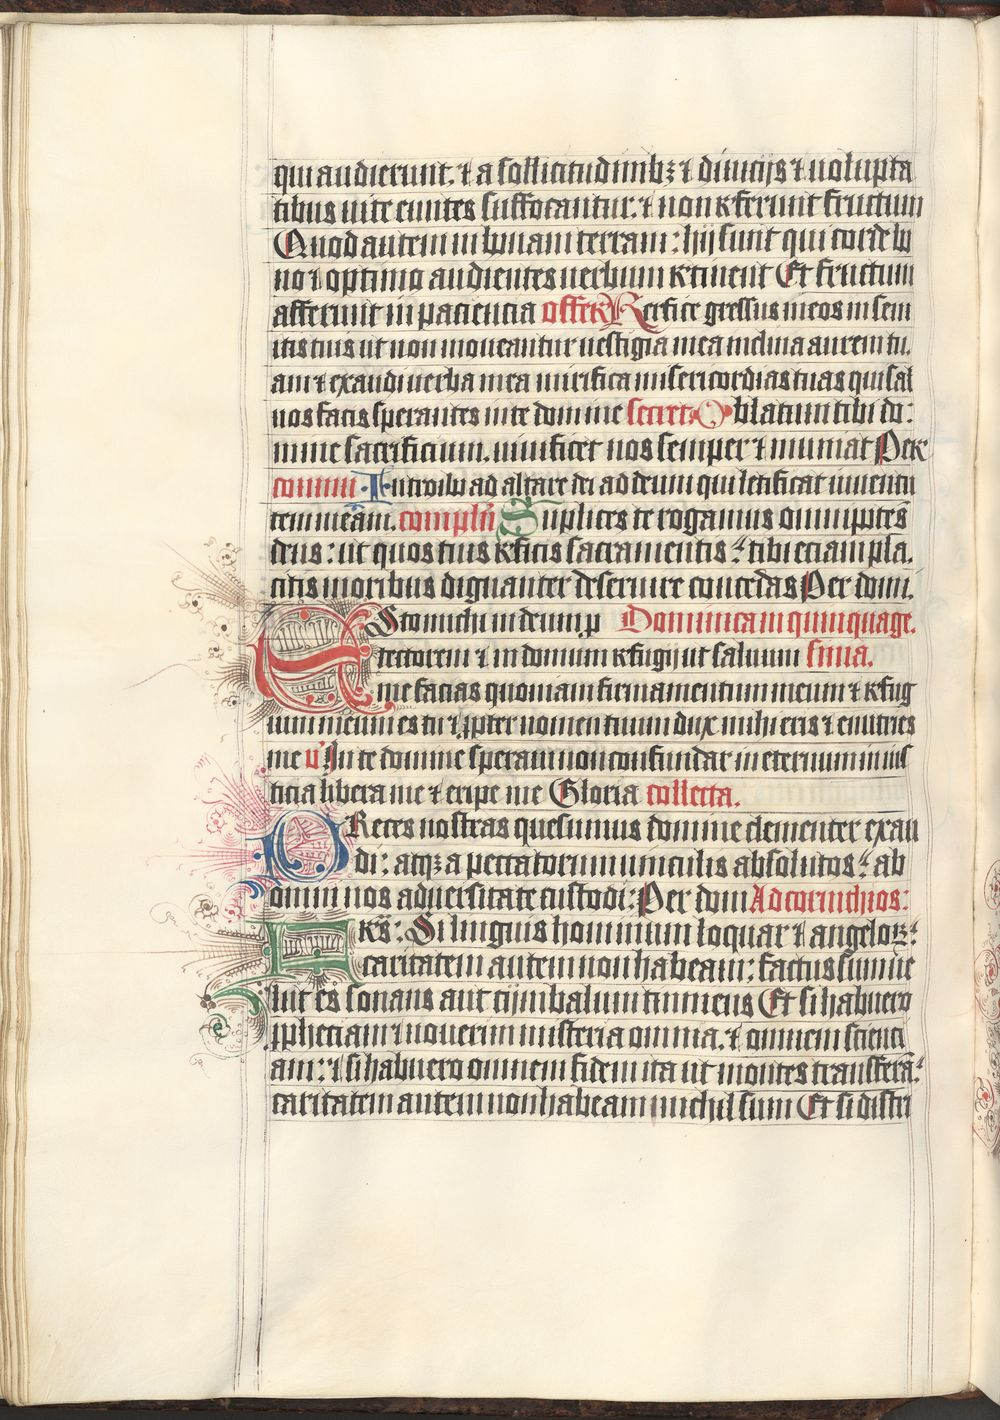 qui audierunt. ⁊ a sollicitudinibꝫ ⁊ diuicijs ⁊ uolupta
tibus uite euntes suffocantur. ⁊ non referunt fructum
Quod autem in bonam terram: hij sunt qui corde bo
no ⁊ optimo audientes uerbum retinent Et fructum
afferunt in paciencia offer Perfice gressus meos in sem
itis tuis ut non moueantur uestigia mea inclina aurem tu.
am ⁊ exaudi uerba mea mirifica misericordias tuas qui sal
uos facis sperantes in te domine secret Oblatum tibi do:
mine sacrificium. uiuificet nos semper ⁊ muniat Per
commu Introibo ad altare dei ad deum qui letificat iuuentu
tem meam. complñ Suplices te rogamus omnipotēs
deus: ut quos tuis reficis sacramentis: tibi eciam pla.
citis moribus dignanter deseruire concedas Per domi.
Esto michi in deum p Dominica in quinquage.
tectorem ⁊ in domum refugij ut saluum sima.
me facias quoniam firmamentum meum ⁊ refug
ium meum es tu ⁊ ꝓpter nomen tuum dux mihi eris ⁊ enutries
me v̓ In te domine speraui non confundar in eternum in ius
ticia libera me ⁊ eripe me Gloria collecta.
PReces nostras quesumus domine clementer exau
di: atqꝫ a peccatorum uinculis absolutos: ab
omni nos aduersitate custodi: Per dom Ad corinthios:
Frēs: Si linguis hominum loquar ⁊ angeloꝝ:
caritatem autem non habeam: factus sum ue
lut es sonans aut cijmbalum tinniens Et si habuero
ꝓpheciam ⁊ nouerim misteria omnia. ⁊ omnem scienci
am: ⁊ si habuero omnem fidem ita ut montes transferā:
caritatem autem non habeam nichil sum Et si distri